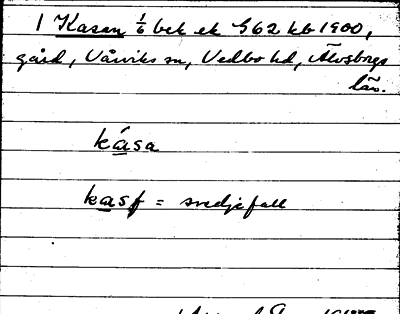 1 Kasen 1/6 bek ek 562 kb 1900,
gård, Vårviks sn, Vedbo hd, Älvsborgs
län.
kása
kasf = svedjefall